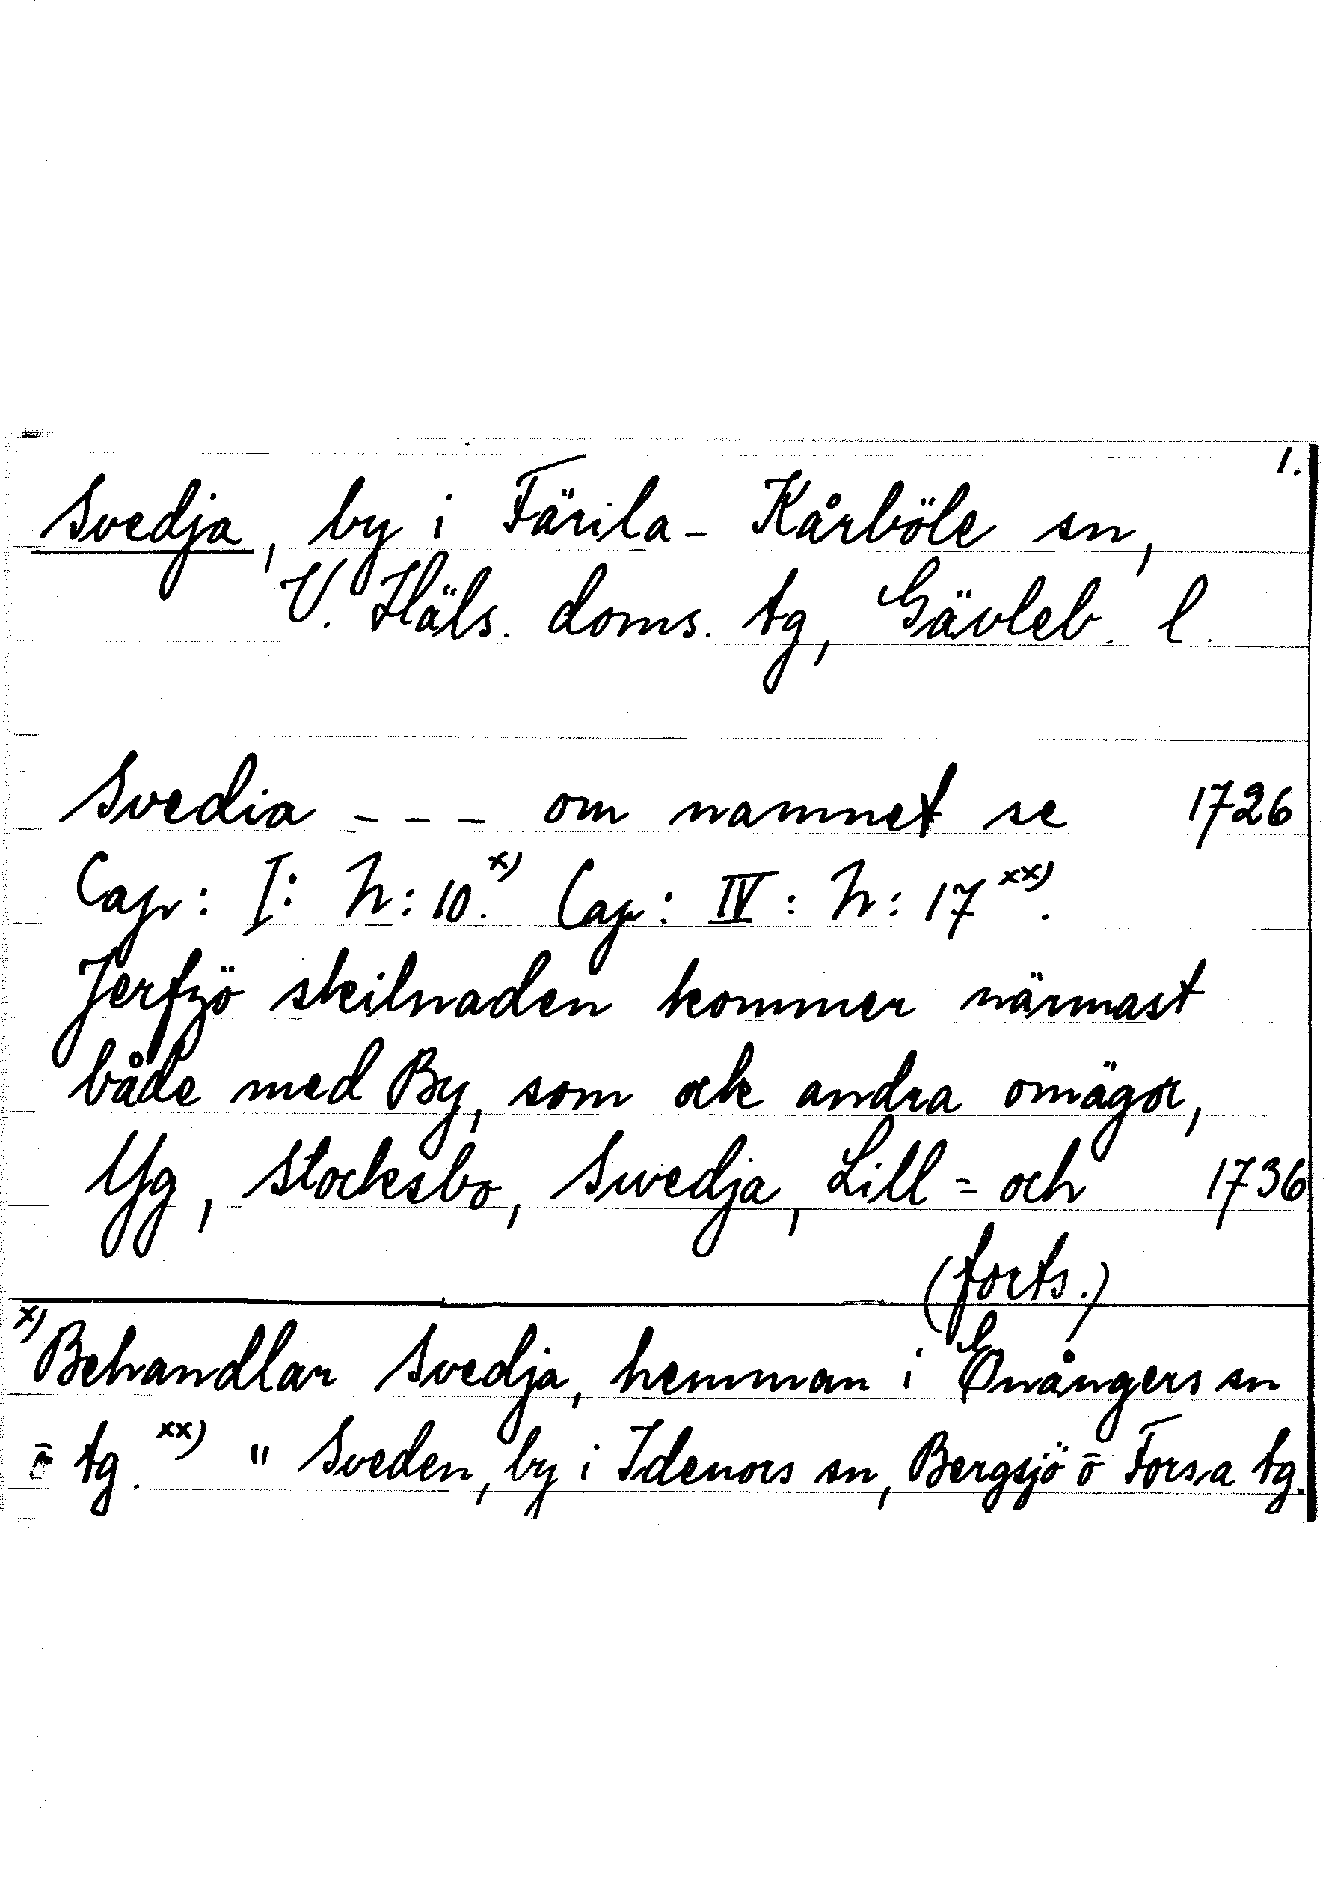 1.
Svedja, by i Färila-Kårböle sn,
V. Häls. doms. tg, Gävleb. l.
Svedia - - - om namnet se 1726
Cap: I: N: 10.x) Cap: IV: N: 17xx).
Jerfzö skilnaden kommer närmast
både med By, som ock andra omägor,
Yg, Stocksbo, Swedja, Lill= och 1736
(forts.)
x) Behandlar Svedja, hemman i Enångers sn
o tg. xx) " Sveden, by i Idenors sn, Bergsjö o Forsa tg.